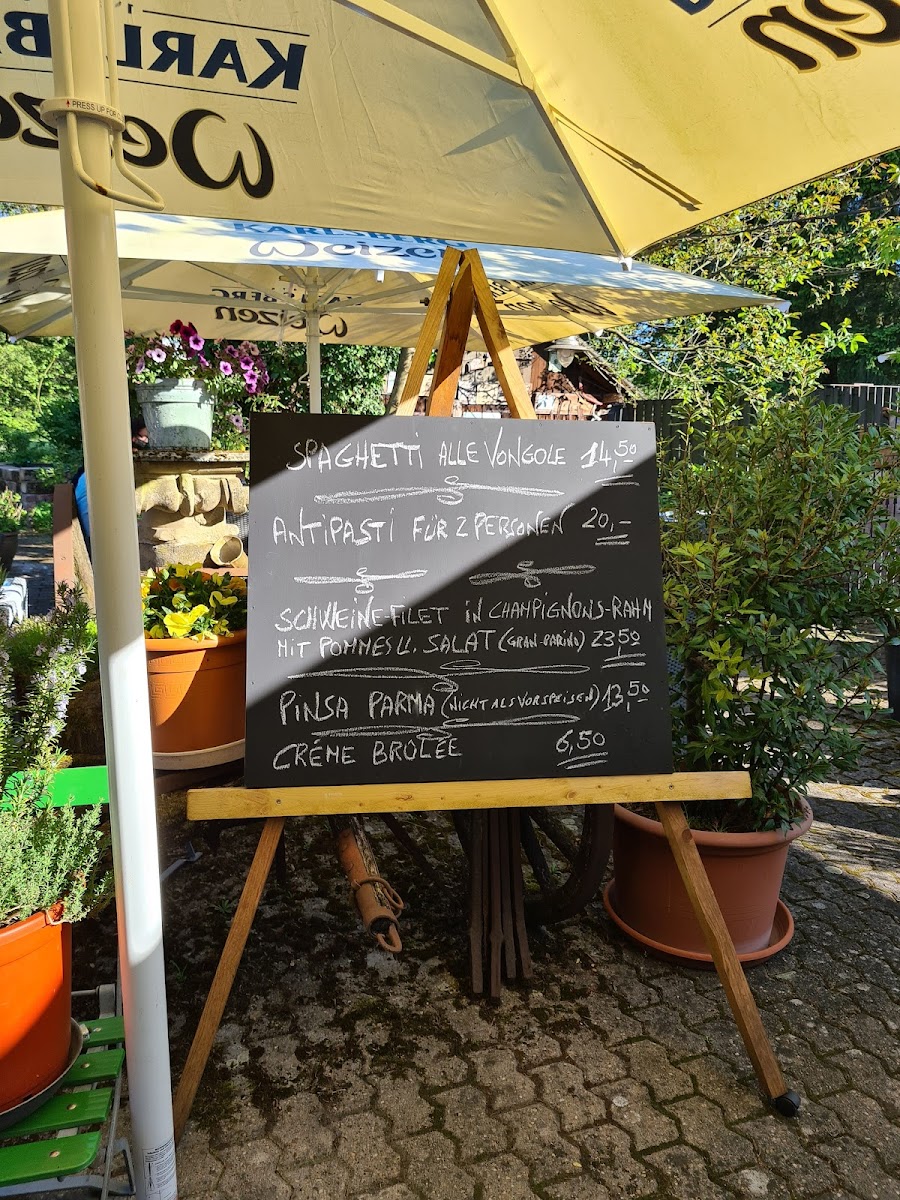 KARLSB
Weizen
PRESS UP FOR
KARLSBERG
Weizen
Weizen
SPAGHETTI ALLE VONGOLE 14,50
ANTIPASTI FÜR 2 PERSONEN 20,-
SCHWEINE-FILET IN CHAMPIGNONS-RAHM
MIT POMMES U. SALAT (GRAN-PARINO) 23,50
PINSA PARMA (NICHT ALS VORSPEISEN) 13,50
CRÉME BRÛLÉE 6,50